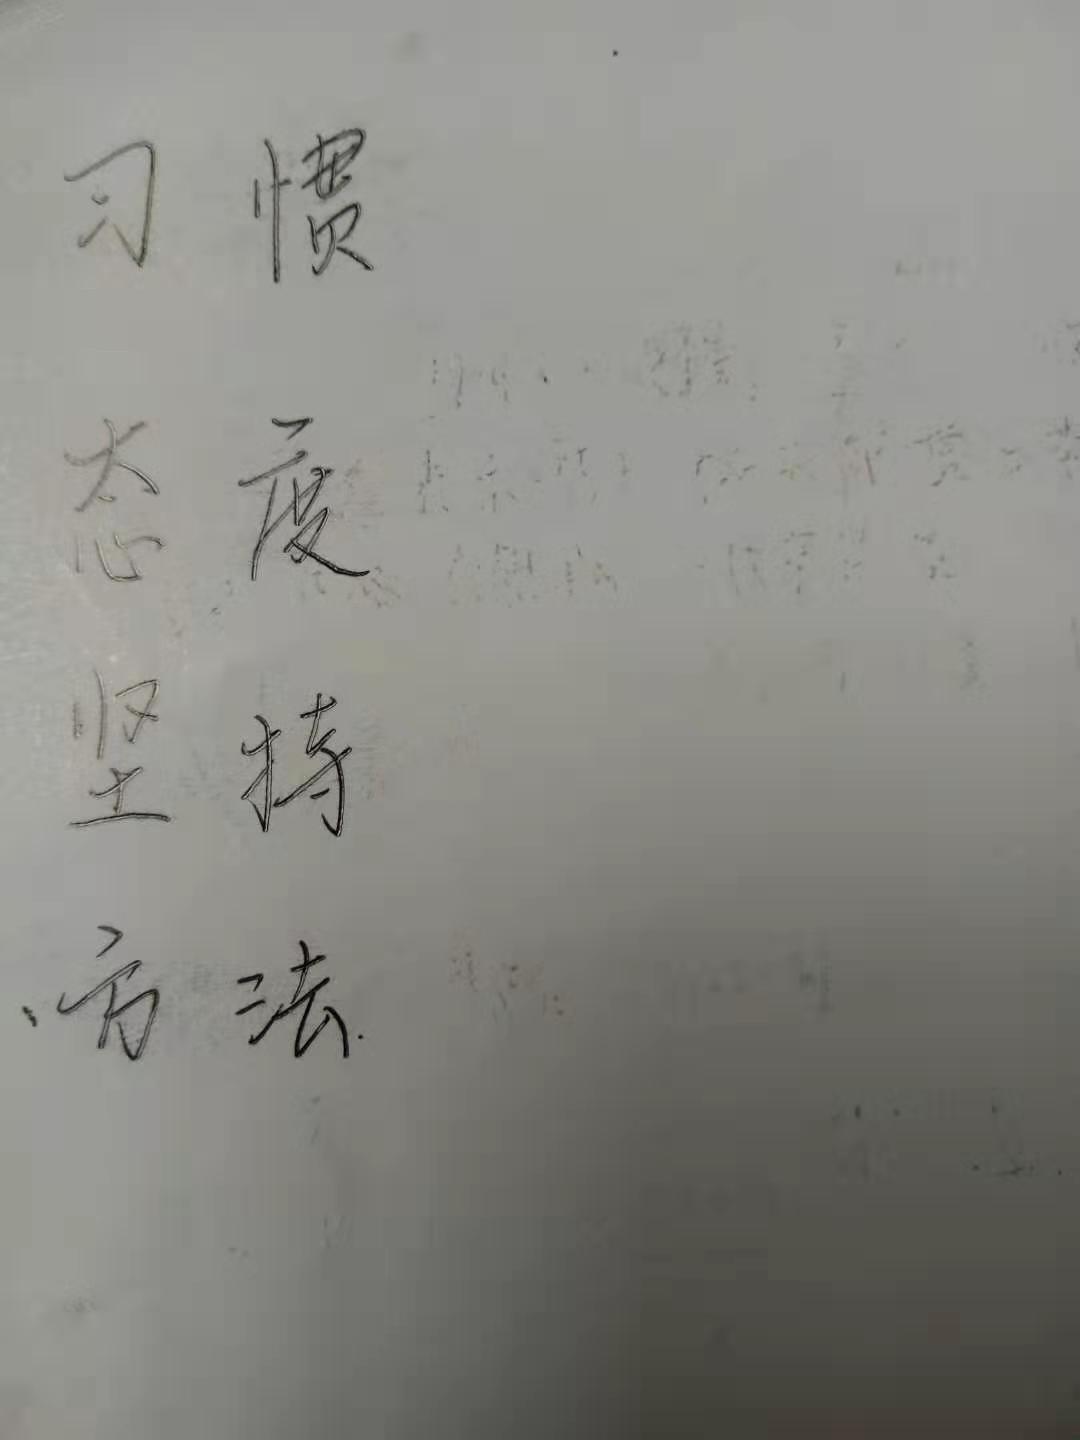 习惯
态度
坚持
方法